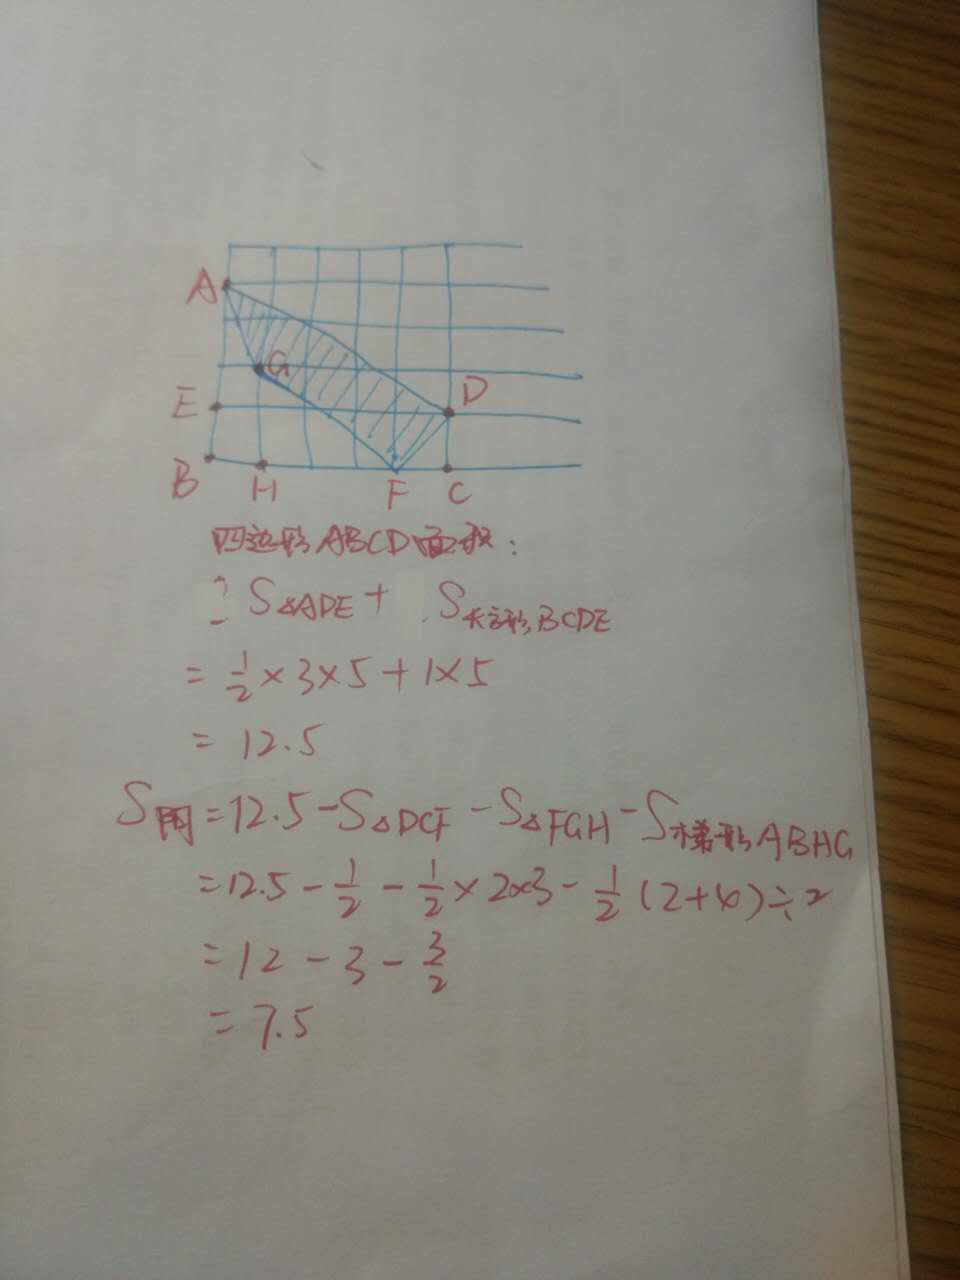 A
G
E
D
B H F C
四边形ABCD面积:
= S△ADE + S长方形BCDE
= 1/2 × 3×5 + 1×5
= 12.5
S阴 = 12.5 - S△DCF - S△FGH - S梯形ABHG
= 12.5 - 1/2 - 1/2 × 2×3 - 1/2 (2+4)÷2
= 12 - 3 - 3/2
= 7.5